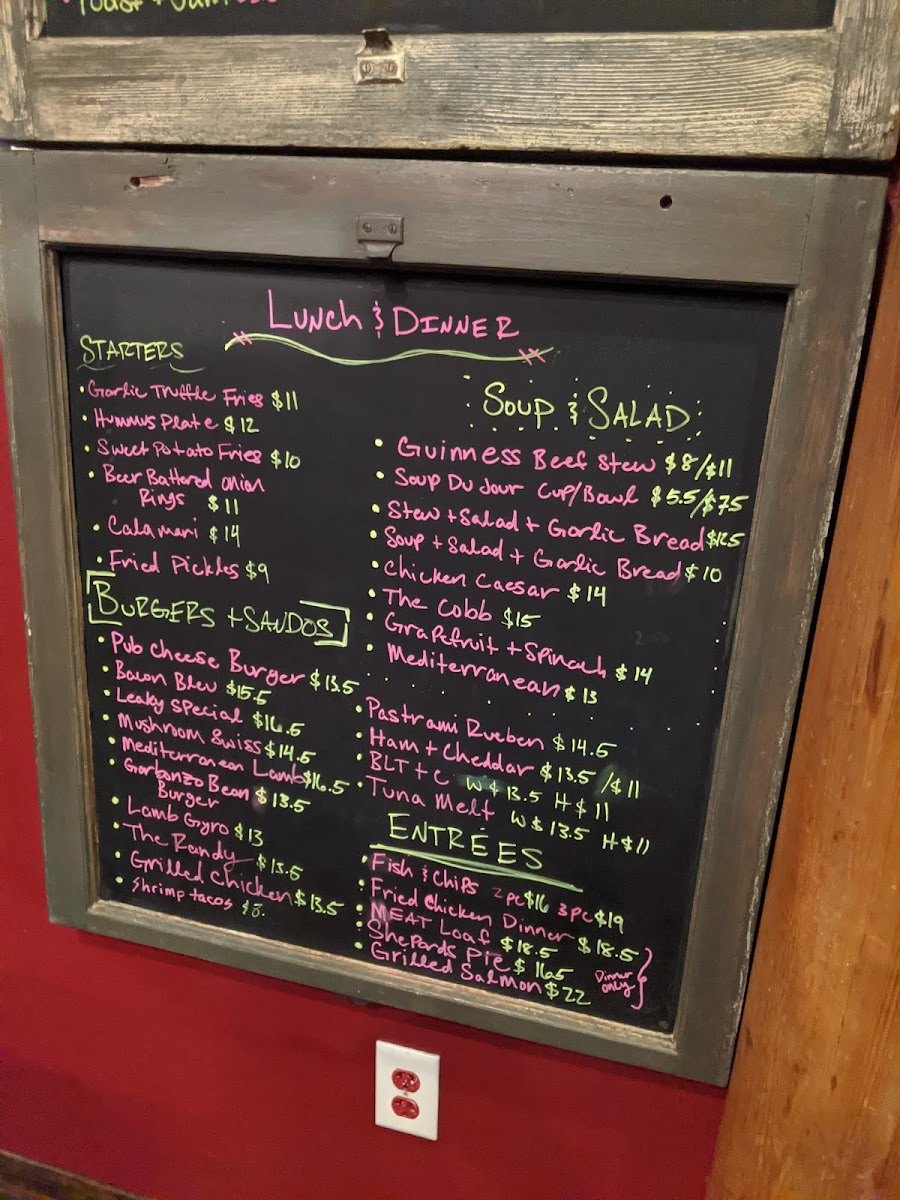 Lunch & Dinner
Starters
• Garlic Truffle Fries $11
• Hummus Plate $12
• Sweet Potato Fries $10
• Beer Battered onion
Rings $11
• Calamari $14
• Fried Pickles $9
Burgers + Sandos
• Pub Cheese Burger $13.5
• Bacon Bleu $15.5
• Leaky Special $16.5
• Mushroom Swiss $14.5
• Mediterranean Lamb $16.5
• Garbanzo Bean
Burger $13.5
• Lamb Gyro $13
• The Randy $13.5
• Grilled Chicken $13.5
• Shrimp tacos
Soup & Salad
• Guinness Beef Stew $8/$11
• Soup Du Jour Cup/Bowl $5.5/$7.5
• Stew + Salad + Garlic Bread $12.5
• Soup + Salad + Garlic Bread $10
• Chicken Caesar $14
• The Cobb $15
• Grapefruit + Spinach $14
• Mediterranean $13
• Pastrami Rueben $14.5
• Ham + Cheddar $13.5 /$11
• BLT + C W $13.5 H $11
• Tuna Melt W $13.5 H $11
Entrées
• Fish & Chips 2pc $16 3pc $19
• Fried Chicken Dinner $18.5
• Meat Loaf $18.5
• Shepards Pie $16.5
• Grilled Salmon $22
Dinner
only